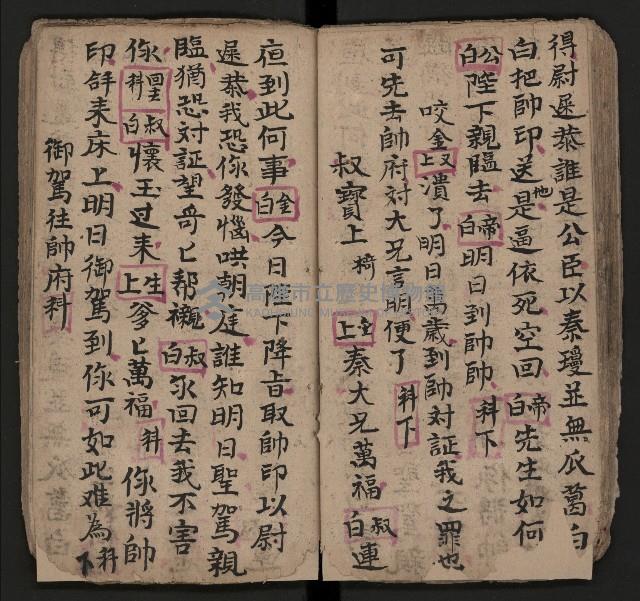 得尉遲恭誰是公臣以秦瓊並無瓜葛白
白把帥印送他是逼依死空回帝白先生如何
公白陛下親臨去帝白明日到帥帥科下
咬金又上潰了明日萬歲到帥対証我之罪也
可先去帥府対大兄言明便了科下
叔寶上椅
金上秦大兄萬福叔白連
夜到此何事金白今日陛下降旨取帥印以尉
遲恭我恐你發惱哄朝廷誰知明日聖駕親
臨猶恐対証望哥匕帮襯叔白你回去我不害
你金科叔白懷玉过来生上爹匕萬福科你將帥
印拜来床上明日御駕到你可如此难為科下
御駕往帥府科
高雄市立歷史博物館
KAOHSIUNG MUSEUM OF HISTORY